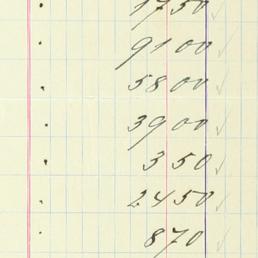 1750
9100
5800
3900
350
2450
870